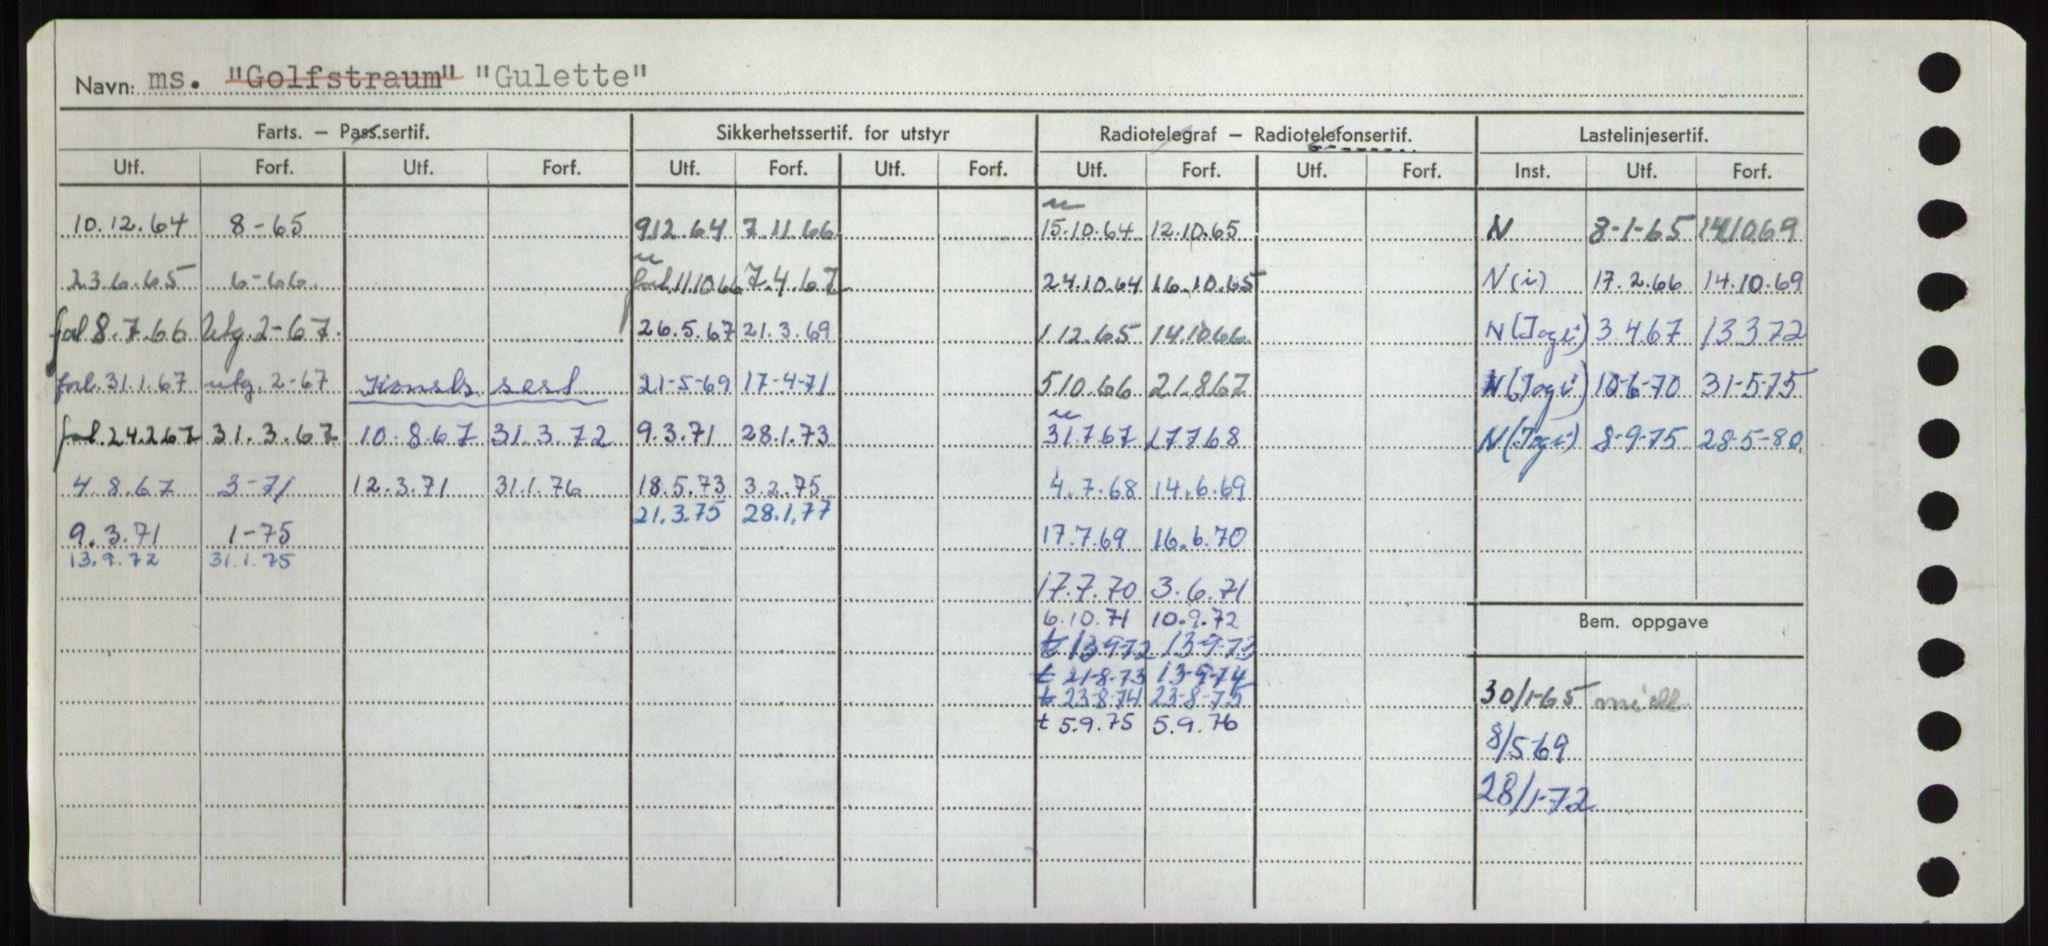 Navn: ms. "Golfstraum" "Gulette"
Farts. – Pass.sertif. Sikkerhetssertif. for utstyr Radiotelegraf – Radiotelefonsertif. Lastelinjesertif.
Utf. Forf. Utf. Forf. Utf. Forf. Utf. Forf. Utf. Forf. Utf. Forf. Inst. Utf. Forf.
10.12.64 8-65 9.12.64 7.11.66 15.10.64 12.10.65 N 8-1-65 14.10.69
23.6.65 6-66. forl. 11.10.66 7.4.67 24.10.64 16.10.65 N (i) 17.2.66 14.10.69
forl 8.7.66 Utg. 2-67. 26.5.67 21.3.69 1.12.65 14.10.66 3.4.67 13.3.72
forl. 31.1.67 utg. 2-67 21-5-69 17-4-71 5.10.66 21.8.67 10-6-70 31-5-75
forl. 24.2.67 31.3.67 10.8.67 31.3.72 9.3.71 28.1.73 31.7.67 17.7.68 8-9-75 28-5-80
4.8.67 3-71 12.3.71 31.1.76 18.5.73 3.2.75 4.7.68 14.6.69
21.3.75 28.1.77
9.3.71 1-75 17.7.69 16.6.70
13.9.72 31.1.75
17.7.70 3.6.71
6.10.71 10.9.72
Bem. oppgave
t 13-9-72 13-9-73
t 21-8-73 13-9-74
t 23-8-74 23-8-75 30/1-65
t 5.9.75 5.9.76
8/5-69
28/1-72